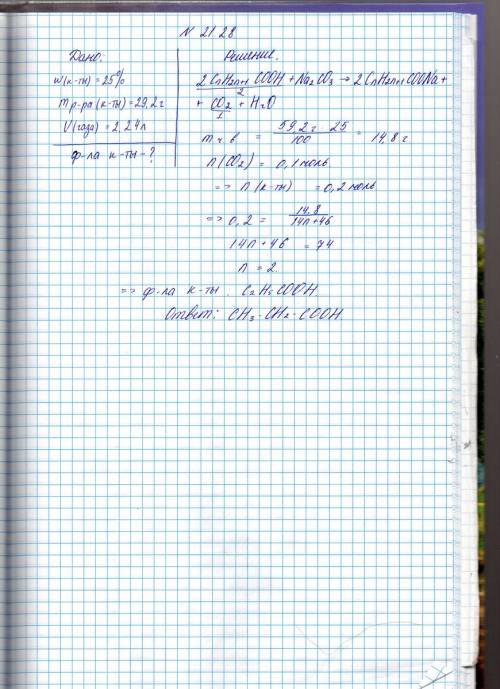 N 2128
Дано:
w(к-ты) = 25%
m р-ра (к-ты) = 29,2 г
V(газа) = 2,24 л
ф-ла к-ты - ?
Решение.
2CnH2n+1COOH + Na2CO3 → 2CnH2n+1COONa +
2
+ CO2 + H2O
1
m ч.в = 59,2 г · 25 / 100 = 14,8 г
n(CO2) = 0,1 моль
=> n (к-ты) = 0,2 моль
=> 0,2 = 14,8 / 14n+46
14n+46 = 74
n = 2.
=> ф-ла к-ты: C2H5COOH.
Ответ: CH3-CH2-COOH